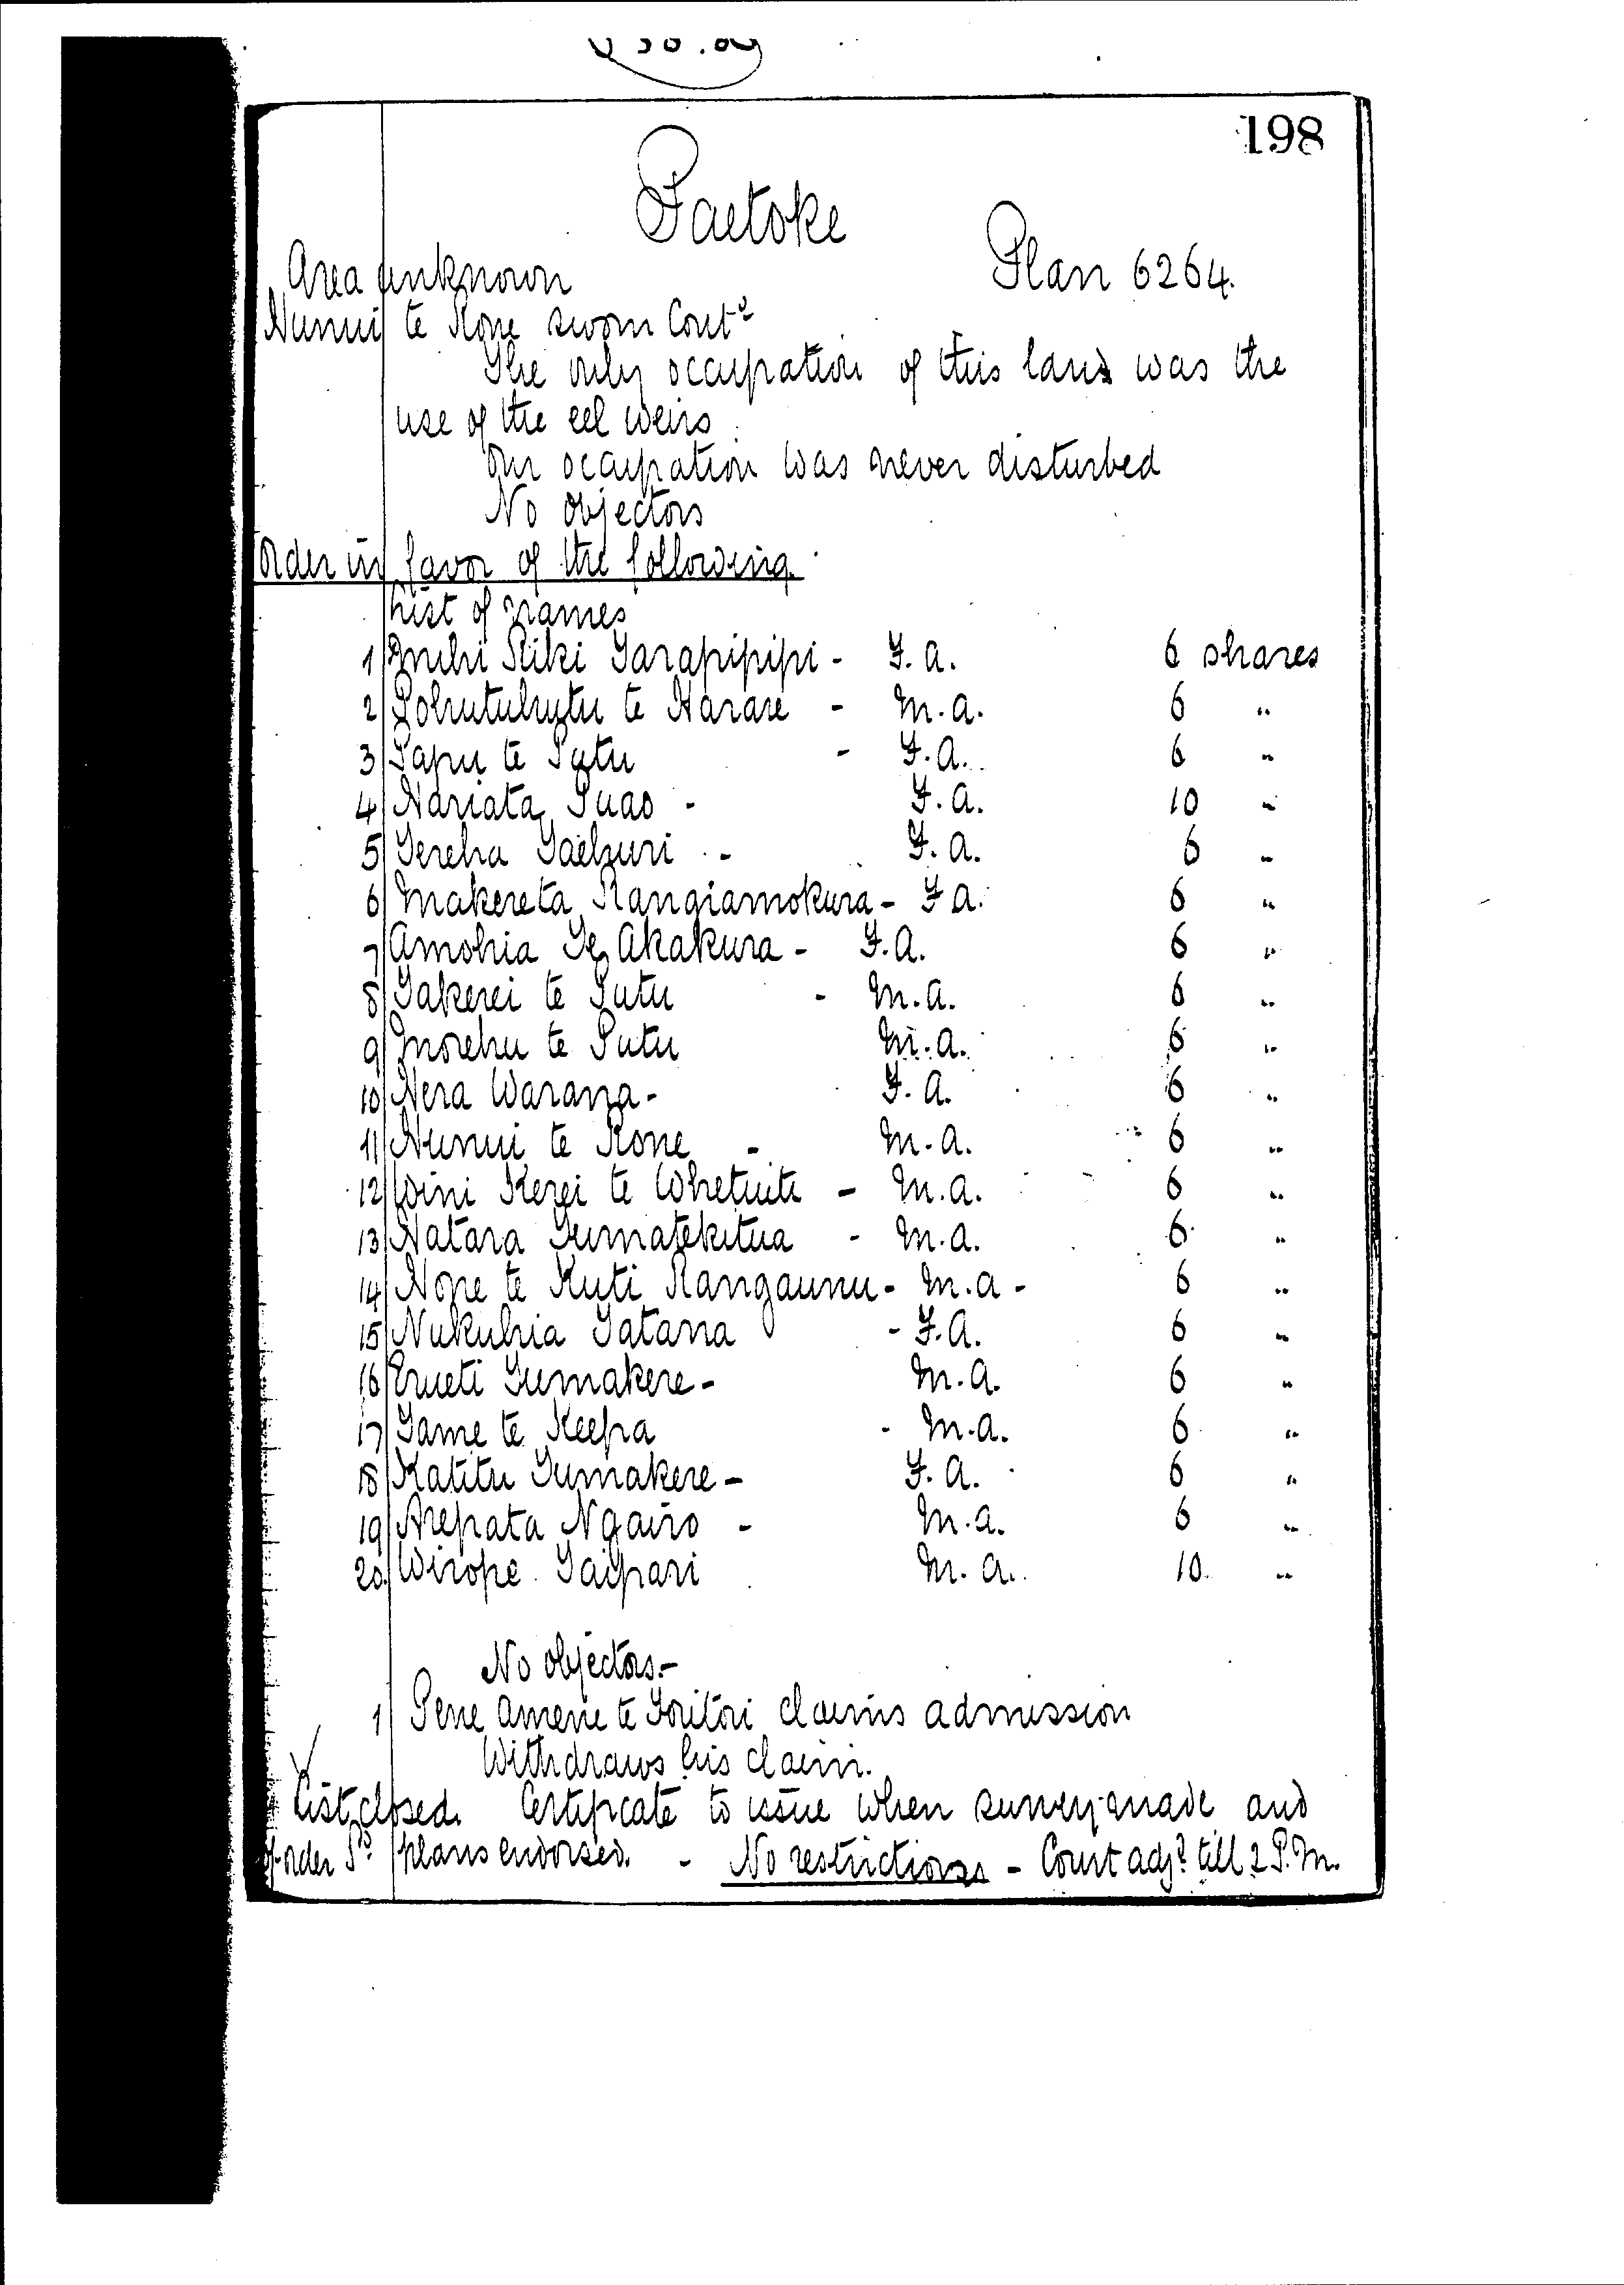 198
Paetoke
Area unknown Plan 6264.
Hunui te Rope sworn Contd
The only occupation of this land was the
use of the eel weirs
Our occupation was never disturbed
No objectors
Order in favor of the following
List of names
1 Mihi Riki Tarapipipi - F. A. 6 shares
2 Pohutuhutu te Harare - M. A. 6 "
3 Papu te Putu - F. A. 6 "
4 Hariata Puao - F. A. 10 "
5 Tereha Taehuri - F. A. 6 "
6 Makereta Rangiamokura - F A. 6 "
7 Amohia Te Akakura - F. A. 6 "
8 Takerei te Putu - M. A. 6 "
9 Morehu te Putu M. A. 6 "
10 Hera Warana - F. A. 6 "
11 Hunui te Rope - M. A. 6 "
12 Wini Kerei te Whetuiti - M. A. 6 "
13 Watara Tumatekitua - M. A. 6 "
14 Hope te Ruti Rangaunu - M. A - 6 "
15 Nukuhia Tatana - F. A. 6 "
16 Erueti Tumakere - M. A. 6 "
17 Tame te Keepa - M. A. 6 "
18 Katitu Tumakere - F. A. 6 "
19 Arepata Ngairo - M. A. 6 "
20 Wirope Taipari M. A. 10 "
No objectors -
1 Pene Amene te Toritori claims admission
Withdraws his claim.
List closed. Certificate to issue when survey made and
plans endorsed. - No restrictions - Court adjd till 2 P.M.
of order Pd